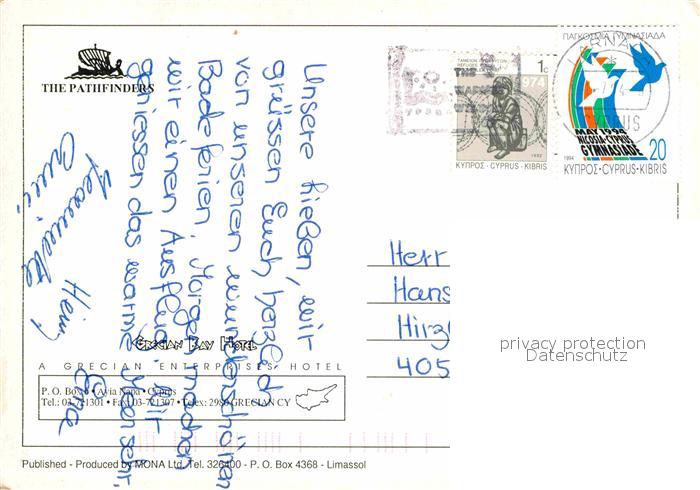 THE PATHFINDERS
Unsere Lieben, wir
grüssen Euch herzlich
von unseren wunderschönen
Badeferien. Morgen machen
wir einen Ausflug. Wir
geniessen das warme
Heinz
GRECIAN BAY HOTEL
A GRECIAN ENTERPRISES HOTEL
P. O. Box 6 • Ayia Napa • Cyprus
Tel.: 03-721301 • Fax: 03-721307 • Telex: 2980 GRECIAN CY
Published - Produced by MONA Ltd. Tel. 326400 - P. O. Box 4368 - Limassol
1c
1974
ΚΥΠΡΟΣ - CYPRUS - KIBRIS
1992
ΠΑΓΚΟΣΜΙΑ ΓΥΜΝΑΣΙΑΔΑ
MAY 1994
NICOSIA-CYPRUS
GYMNASIADE
20
1994
ΚΥΠΡΟΣ-CYPRUS-KIBRIS
CYPRUS
Herr
Hans
Hirz
405
privacy protection
Datenschutz